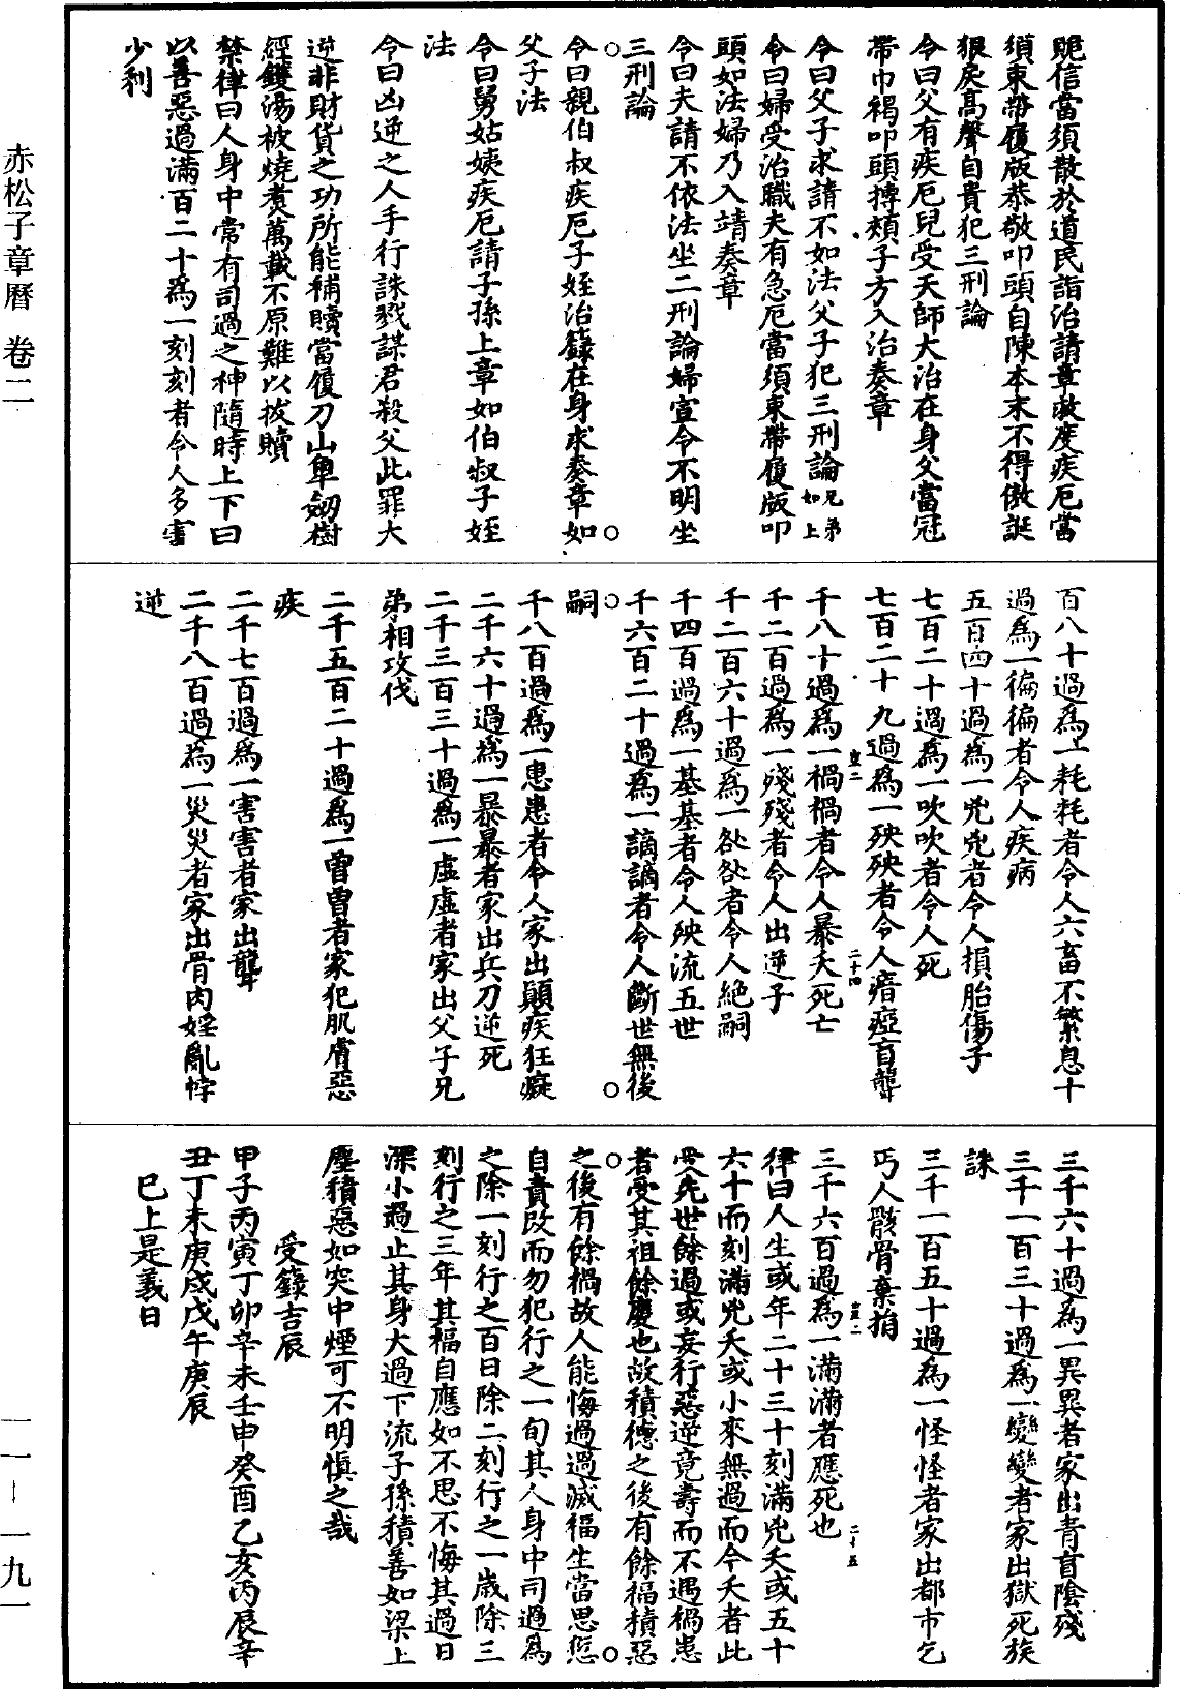 赤松子章曆 卷二
一一-一九一
貺信當須散於道民詣治請章救度疾厄當
須束帶履版恭敬叩頭自陳本末不得傲誕
狠戾高聲自貴犯三刑論
令曰父有疾厄兒受天師大治在身父當冠
帶巾褐叩頭搏頰子方入治奏章
令曰父子求請不如法父子犯三刑論兄弟如上
令曰婦受治職夫有急厄當須束帶履版叩
頭如法婦乃入靖奏章
令曰夫請不依法坐二刑論婦宣令不明坐
三刑論
令曰親伯叔疾厄子姪治籙在身求奏章如
父子法
令曰舅姑姨疾厄請子孫上章如伯叔子姪
法
令曰凶逆之人手行誅戮謀君殺父此罪大
逆非財貨之功所能補贖當履刀山劒樹
經鑊湯被燒煑萬載不原難以拔贖
禁律曰人身中常有司過之神隨時上下曰
以善惡過滿百二十爲一刻刻者令人多害
少利
百八十過爲一耗耗者令人六畜不繁息十
過爲一徧徧者令人疾病
五百四十過爲一兇兇者令人損胎傷子
七百二十過爲一吹吹者令人死
七百二十九過爲一殃殃者令人瘖瘂盲聾
千八十過爲一禍禍者令人暴夭死亡
壹二
二十四
千二百過爲一殘殘者令人出逆子
千二百六十過爲一咎咎者令人絶嗣
千四百過爲一基基者令人殃流五世
千六百二十過爲一謫謫者令人斷世無後
嗣
千八百過爲一患患者令人家出顚疾狂癡
二千六十過爲一暴暴者家出兵刀逆死
二千三百三十過爲一虛虛者家出父子兄
弟相攻伐
二千五百二十過爲一曽曽者家犯肌膚惡
疾
二千七百過爲一害害者家出聾
二千八百過爲一災災者家出骨肉婬亂悖
逆
三千六十過爲一異異者家出青盲陰殘
三千一百三十過爲一變變者家出獄死族
誅
三千一百五十過爲一怪怪者家出都市乞
丐人骸骨棄捐
三千六百過爲一滿滿者應死也
壹二
二十五
律曰人生或年二十三十刻滿兇夭或五十
六十而刻滿兇夭或小來無過而令夭者此
受先世餘過或妄行惡逆竟壽而不遇禍患
者受其祖餘慶也故積德之後有餘福積惡
之後有餘禍故人能悔過過滅福生當思愆
自責改而勿犯行之一旬其人身中司過爲
之除一刻行之百日除二刻行之一歲除三
刻行之三年其福自應如不思不悔其過日
深小過止其身大過下流子孫積善如梁上
塵積惡如突中煙可不明愼之哉
受籙吉辰
甲子丙寅丁卯辛未壬申癸酉乙亥丙辰辛
丑丁未庚戌戊午庚辰
巳上是義日